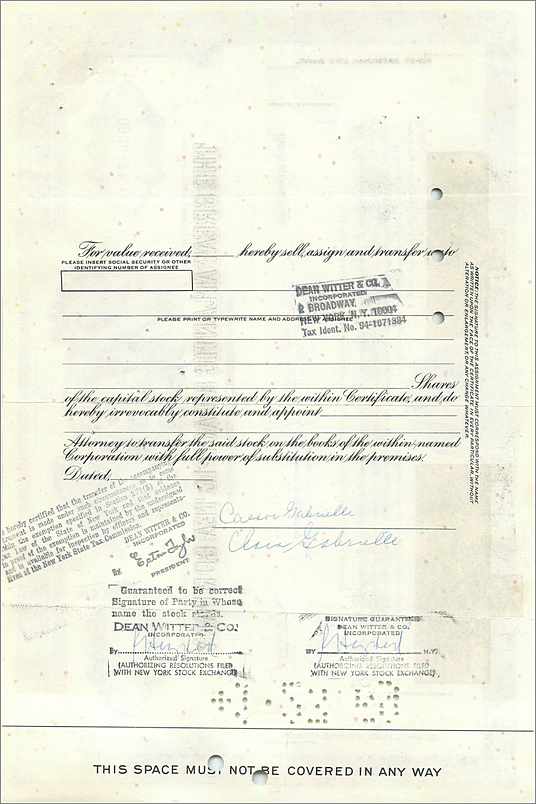 For value received, hereby sell, assign and transfer unto
PLEASE INSERT SOCIAL SECURITY OR OTHER
IDENTIFYING NUMBER OF ASSIGNEE
DEAN WITTER & CO.
INCORPORATED
2 BROADWAY,
NEW YORK, N.Y. 10004
Tax Ident. No. 94-1671384
PLEASE PRINT OR TYPEWRITE NAME AND ADDRESS OF ASSIGNEE
NOTICE: THE SIGNATURE TO THIS ASSIGNMENT MUST CORRESPOND WITH THE NAME
AS WRITTEN UPON THE FACE OF THE CERTIFICATE, IN EVERY PARTICULAR, WITHOUT
ALTERATION OR ENLARGEMENT, OR ANY CHANGE WHATEVER.
Shares
of the capital stock represented by the within Certificate, and do
hereby irrevocably constitute and appoint
Attorney to transfer the said stock on the books of the within-named
Corporation with full power of substitution in the premises.
Dated,
hereby certified that the transfer of
is made under such circumstances
the exemption specified in Section
Tax Law of the State of New York
in proof of the exemption is maintained by the undersigned
and is available for inspection by officers and represent-
atives of the New York State Tax Commission.
DEAN WITTER & CO.
INCORPORATED
By
PRESIDENT
Gabrielle
Clara Gabrielle
Guaranteed to be correct
Signature of Party in Whose
name the stock stands.
DEAN WITTER & CO.
INCORPORATED
By
Authorized Signature
(AUTHORIZING RESOLUTIONS FILED
WITH NEW YORK STOCK EXCHANGE)
SIGNATURE GUARANTEED
DEAN WITTER & CO.
INCORPORATED
BY N.Y.
Authorized Signature
(AUTHORIZING RESOLUTIONS FILED
WITH NEW YORK STOCK EXCHANGE)
THIS SPACE MUST NOT BE COVERED IN ANY WAY